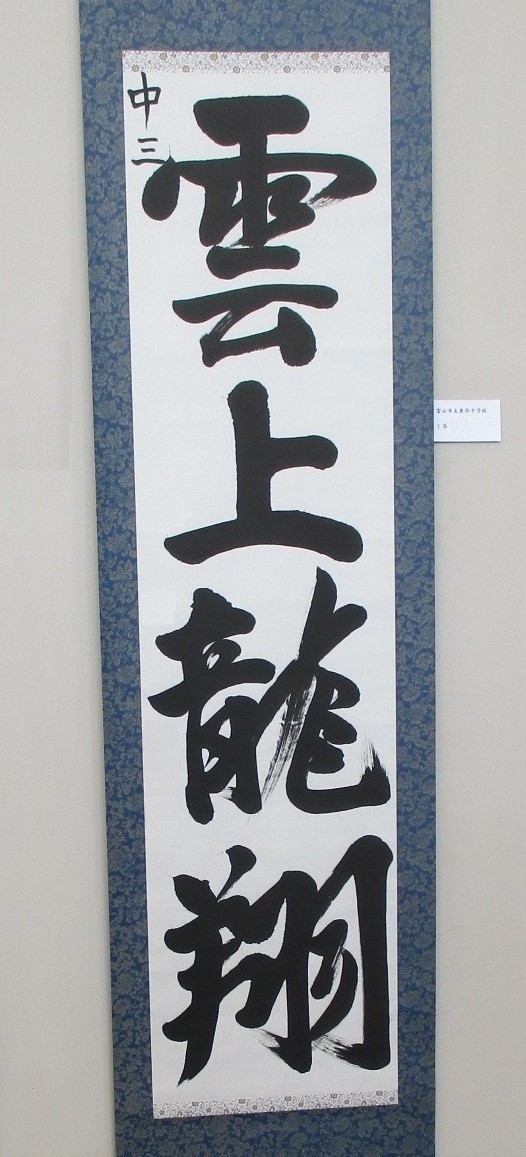 雲上龍翔
中三
富山市立東部中学校
3年